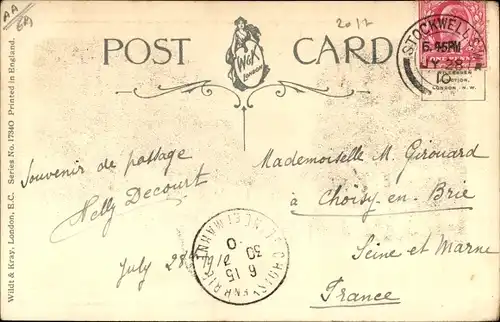 AA
6A
2017
POST CARD
W&K
LONDON
STOCKWELL S.
6.45PM
JY 28
10
LONDON. N.W.
Souvenir de passage
Nelly Decourt
July 28th 1910
Mademoiselle M. Girouard
à Choisy-en-Brie
Seine et Marne
France
CHOISY-EN-BRIE
SEINE ET MARNE
6 15
30
7
10
Wildt & Kray, London, E.C. Series No. 17340 Printed in England.